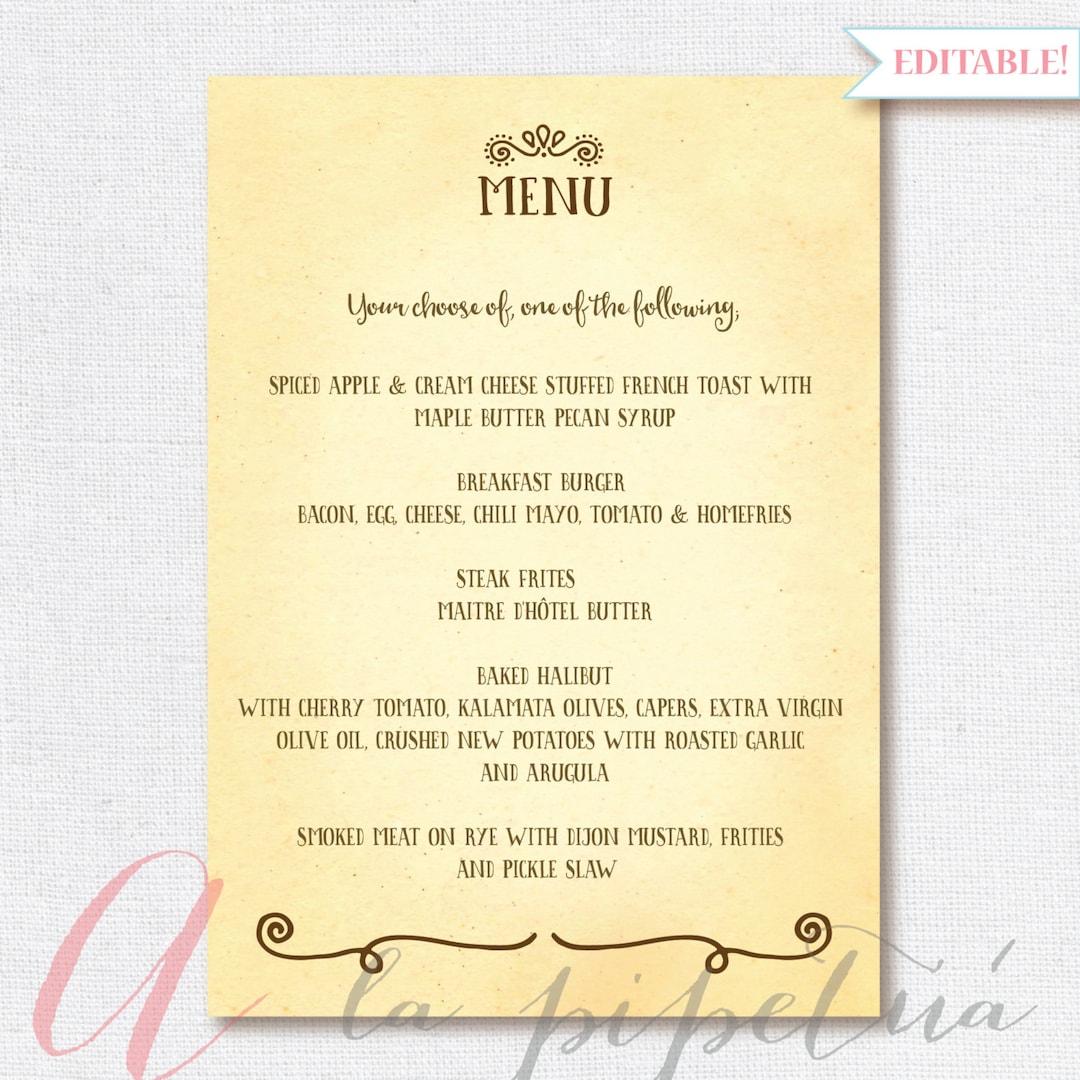 EDITABLE!
MENU
Your choose of, one of the following;
SPICED APPLE & CREAM CHEESE STUFFED FRENCH TOAST WITH
MAPLE BUTTER PECAN SYRUP
BREAKFAST BURGER
BACON, EGG, CHEESE, CHILI MAYO, TOMATO & HOMEFRIES
STEAK FRITES
MAITRE D'HÔTEL BUTTER
BAKED HALIBUT
WITH CHERRY TOMATO, KALAMATA OLIVES, CAPERS, EXTRA VIRGIN
OLIVE OIL, CRUSHED NEW POTATOES WITH ROASTED GARLIC
AND ARUGULA
SMOKED MEAT ON RYE WITH DIJON MUSTARD, FRITIES
AND PICKLE SLAW
a la pipetuá